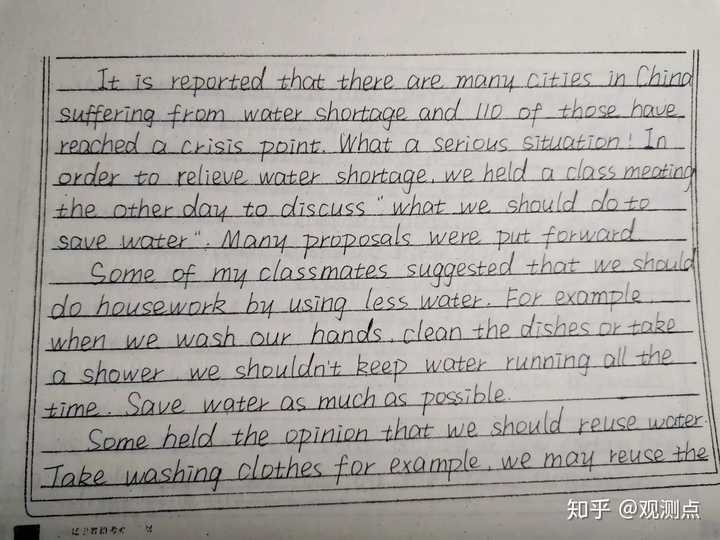 It is reported that there are many cities in China
suffering from water shortage and 110 of those have
reached a crisis point. What a serious situation! In
order to relieve water shortage, we held a class meeting
the other day to discuss "what we should do to
save water". Many proposals were put forward
Some of my classmates suggested that we should
do housework by using less water. For example,
when we wash our hands, clean the dishes or take
a shower we shouldn't keep water running all the
time. Save water as much as possible.
Some held the opinion that we should reuse water.
Take washing clothes for example, we may reuse the
知乎 @观测点